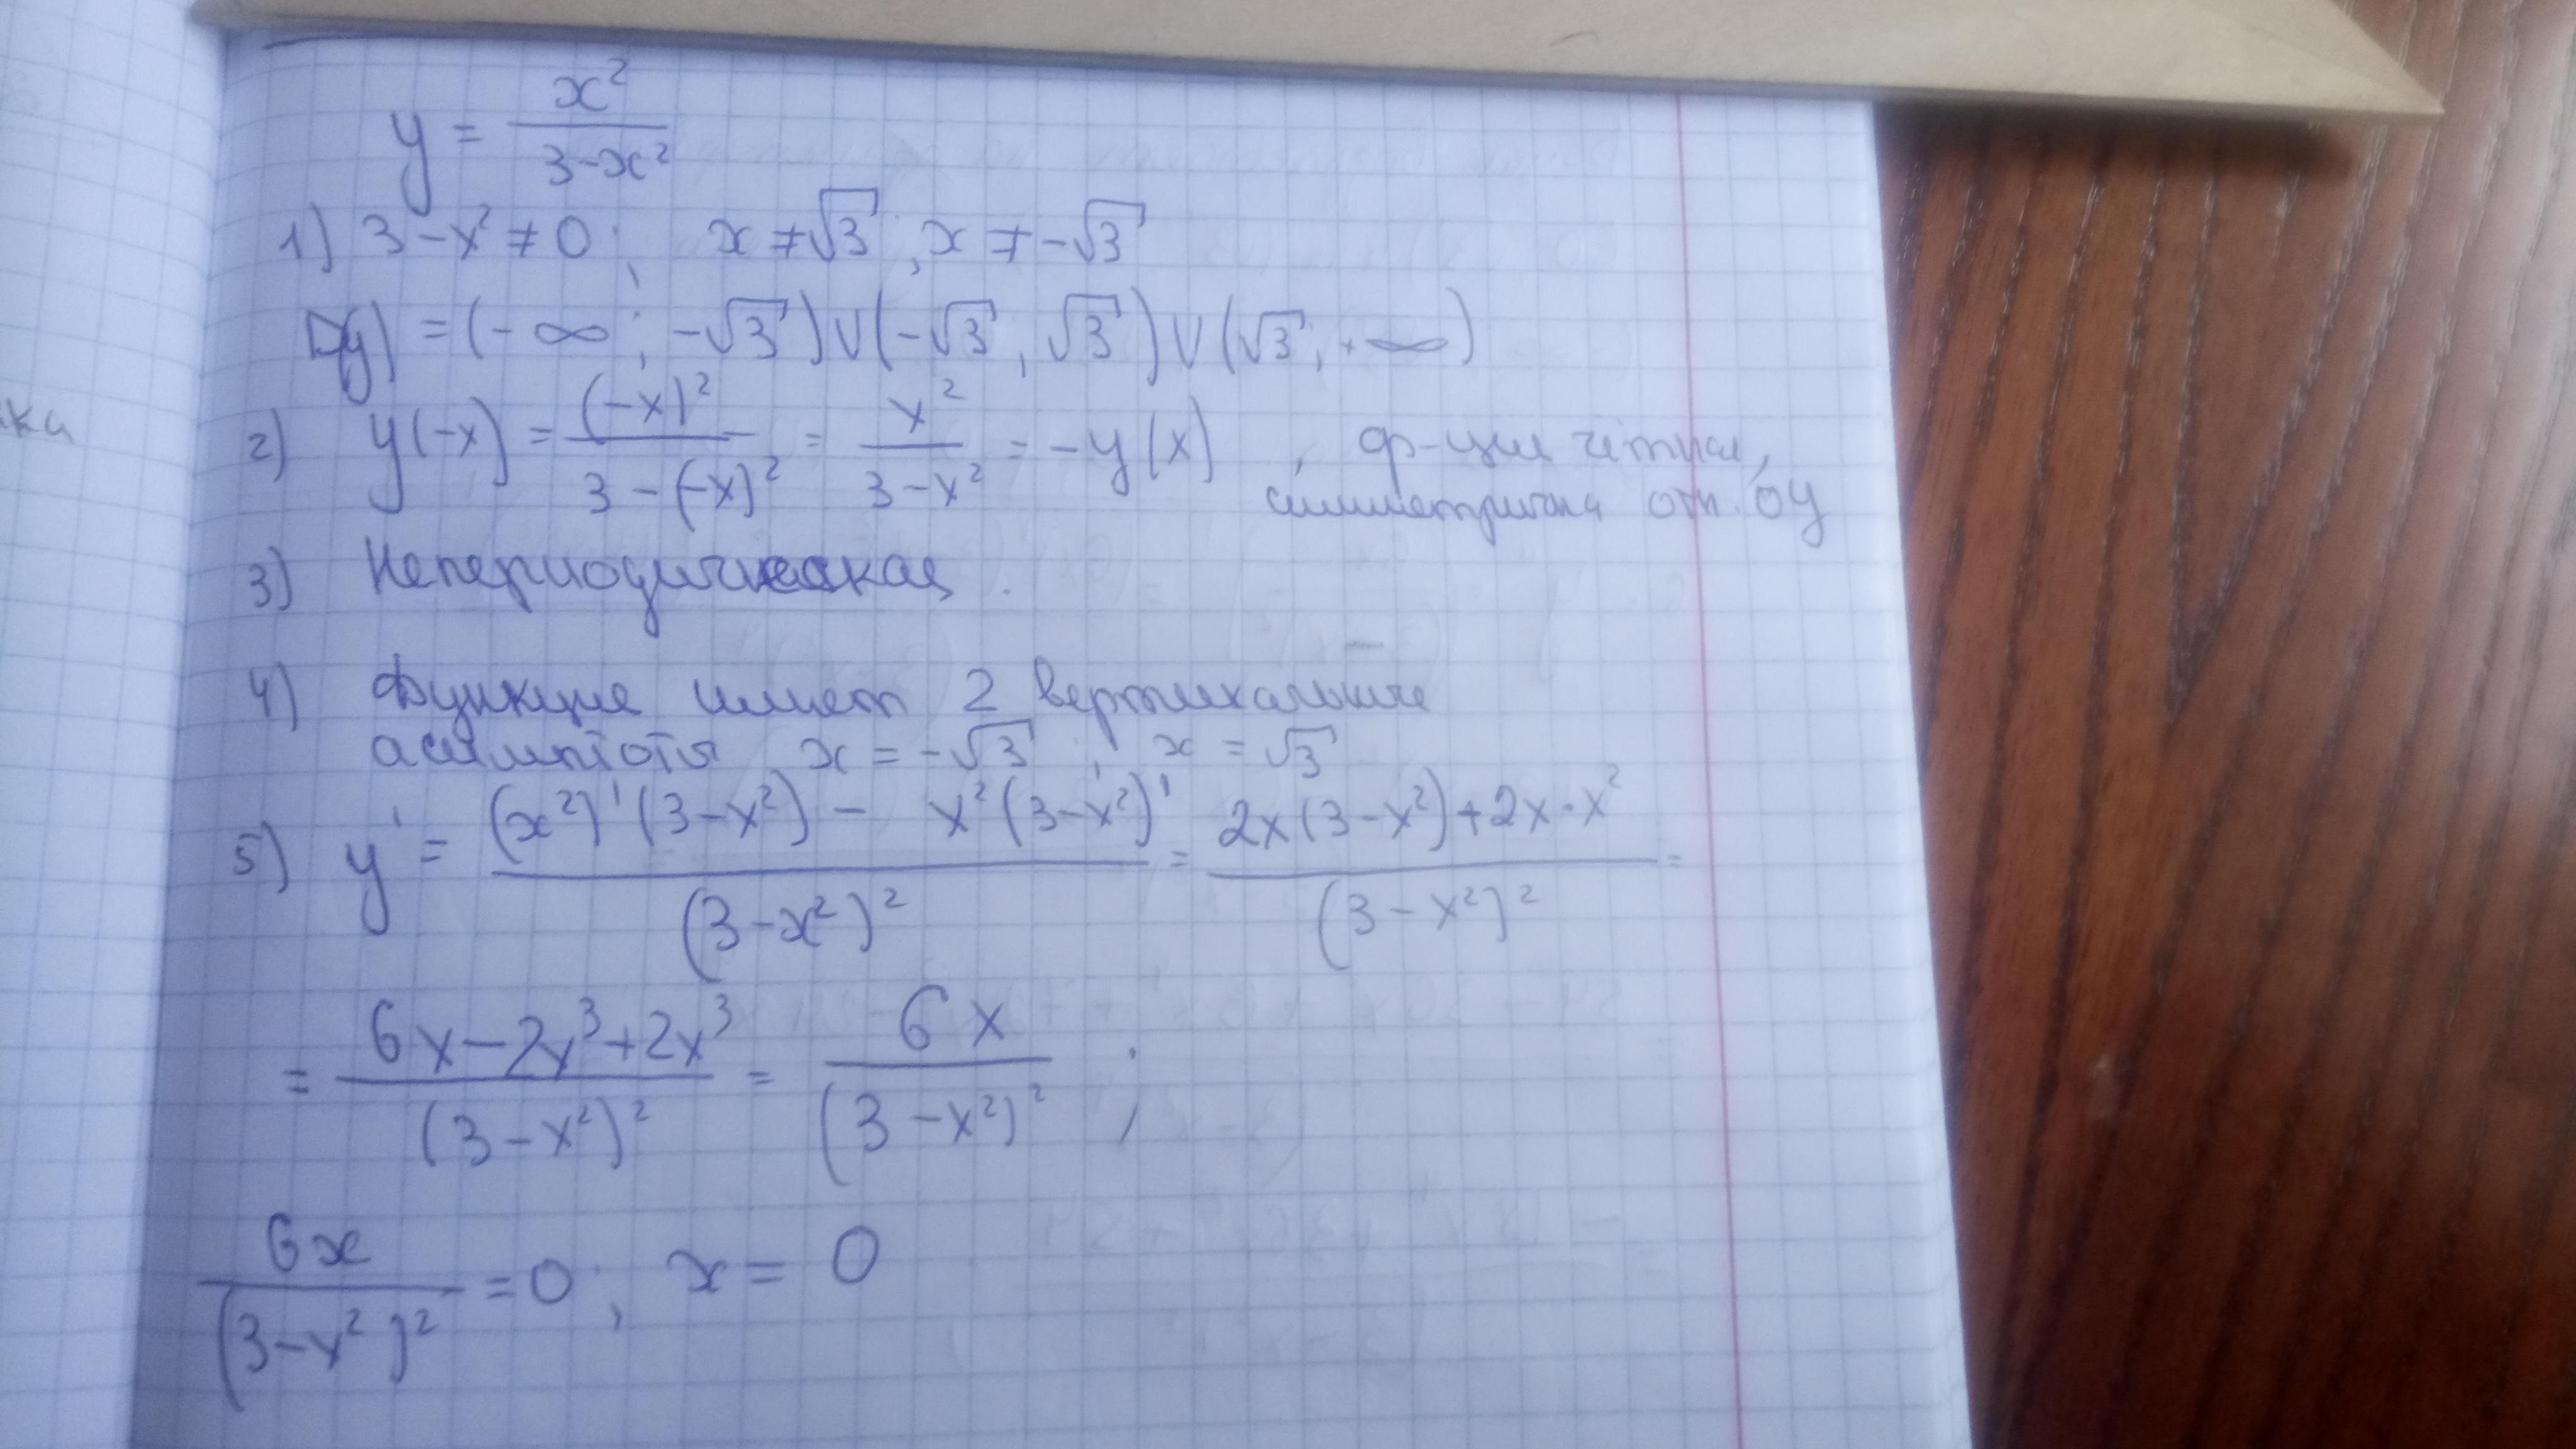 y = x²/(3-x²)
1) 3-x² ≠ 0; x ≠ √3, x ≠ -√3
D(y) = (-∞; -√3) ∪ (-√3; √3) ∪ (√3; +∞)
2) y(-x) = (-x)²/(3-(-x)²) = x²/(3-x²) = -y(x), ф-ция чётная,
симметрична отн. OY
3) Непериодическая.
4) Функция имеет 2 вертикальные
асимптоты x = -√3; x = √3
5) y' = ((x²)'(3-x²) - x²(3-x²)')/(3-x²)² = (2x(3-x²)+2x·x²)/(3-x²)² =
= (6x-2x³+2x³)/(3-x²)² = 6x/(3-x²)²;
6x/(3-x²)² = 0; x = 0